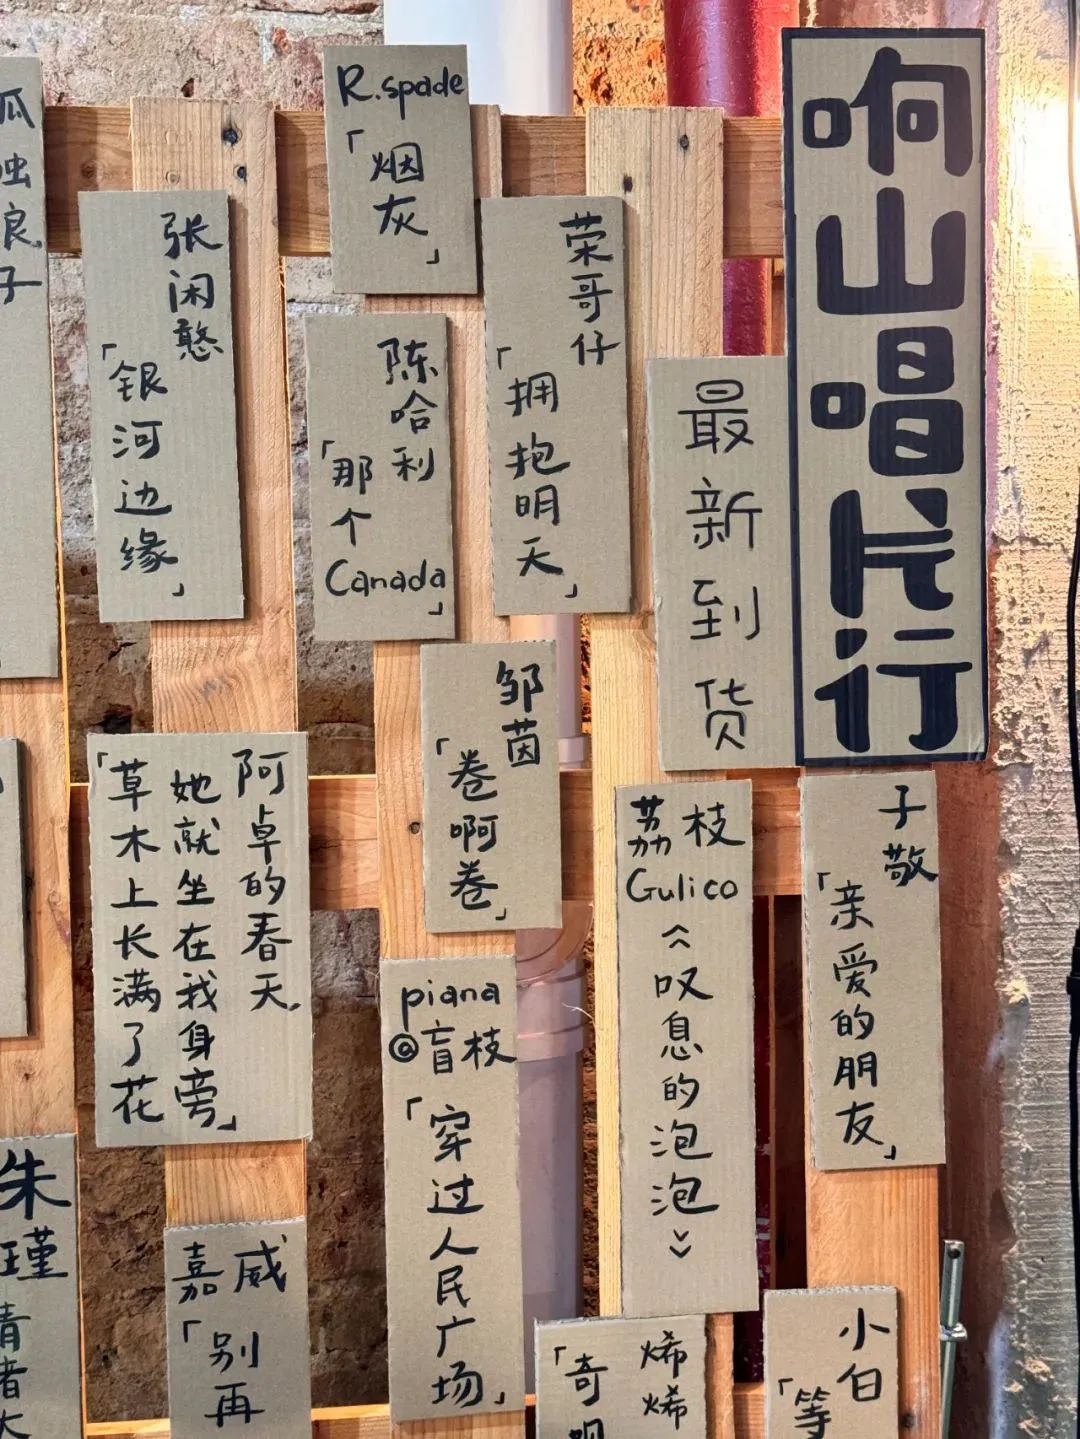 响山唱片行
最新到货
R.spade
「烟灰」
荣哥仔
「拥抱明天」
张闲憨
「银河边缘」
陈哈利
「那个
Canada」
邹茵
「卷啊卷」
阿卓的春天
「草木上长满了花
她就坐在我身旁」
荔枝
Gulico
《叹息的泡泡》
子敬
「亲爱的朋友」
piana
@盲枝
「穿过人民广场」
嘉威
「别再
烯烯
「奇
小白
「等
朱瑾